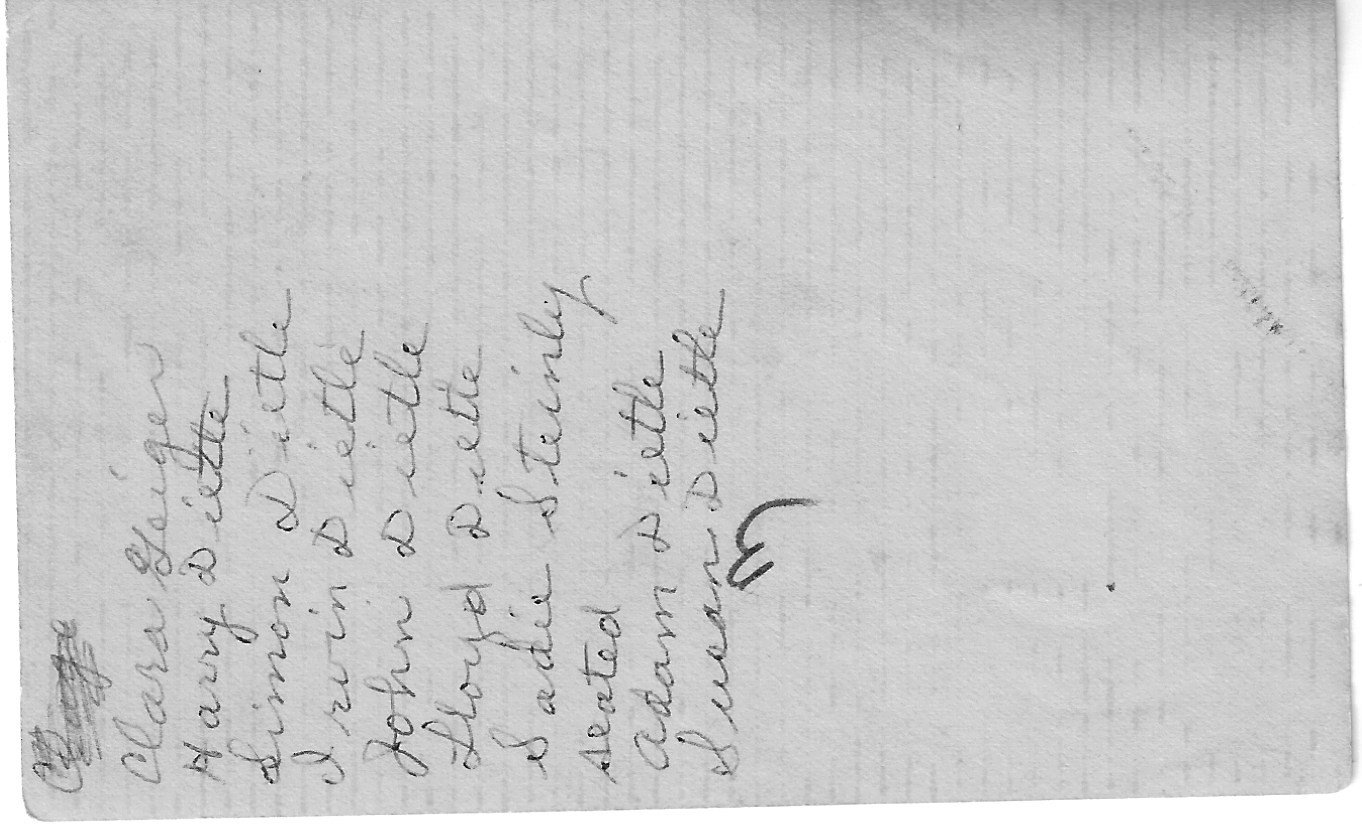 Clara Geiger
Harry Dietle
Simon Dietle
Irvin Dietle
John Dietle
Lloyd Dietle
Sadie Steinly
seated
Adam Dietle
Susan Dietle